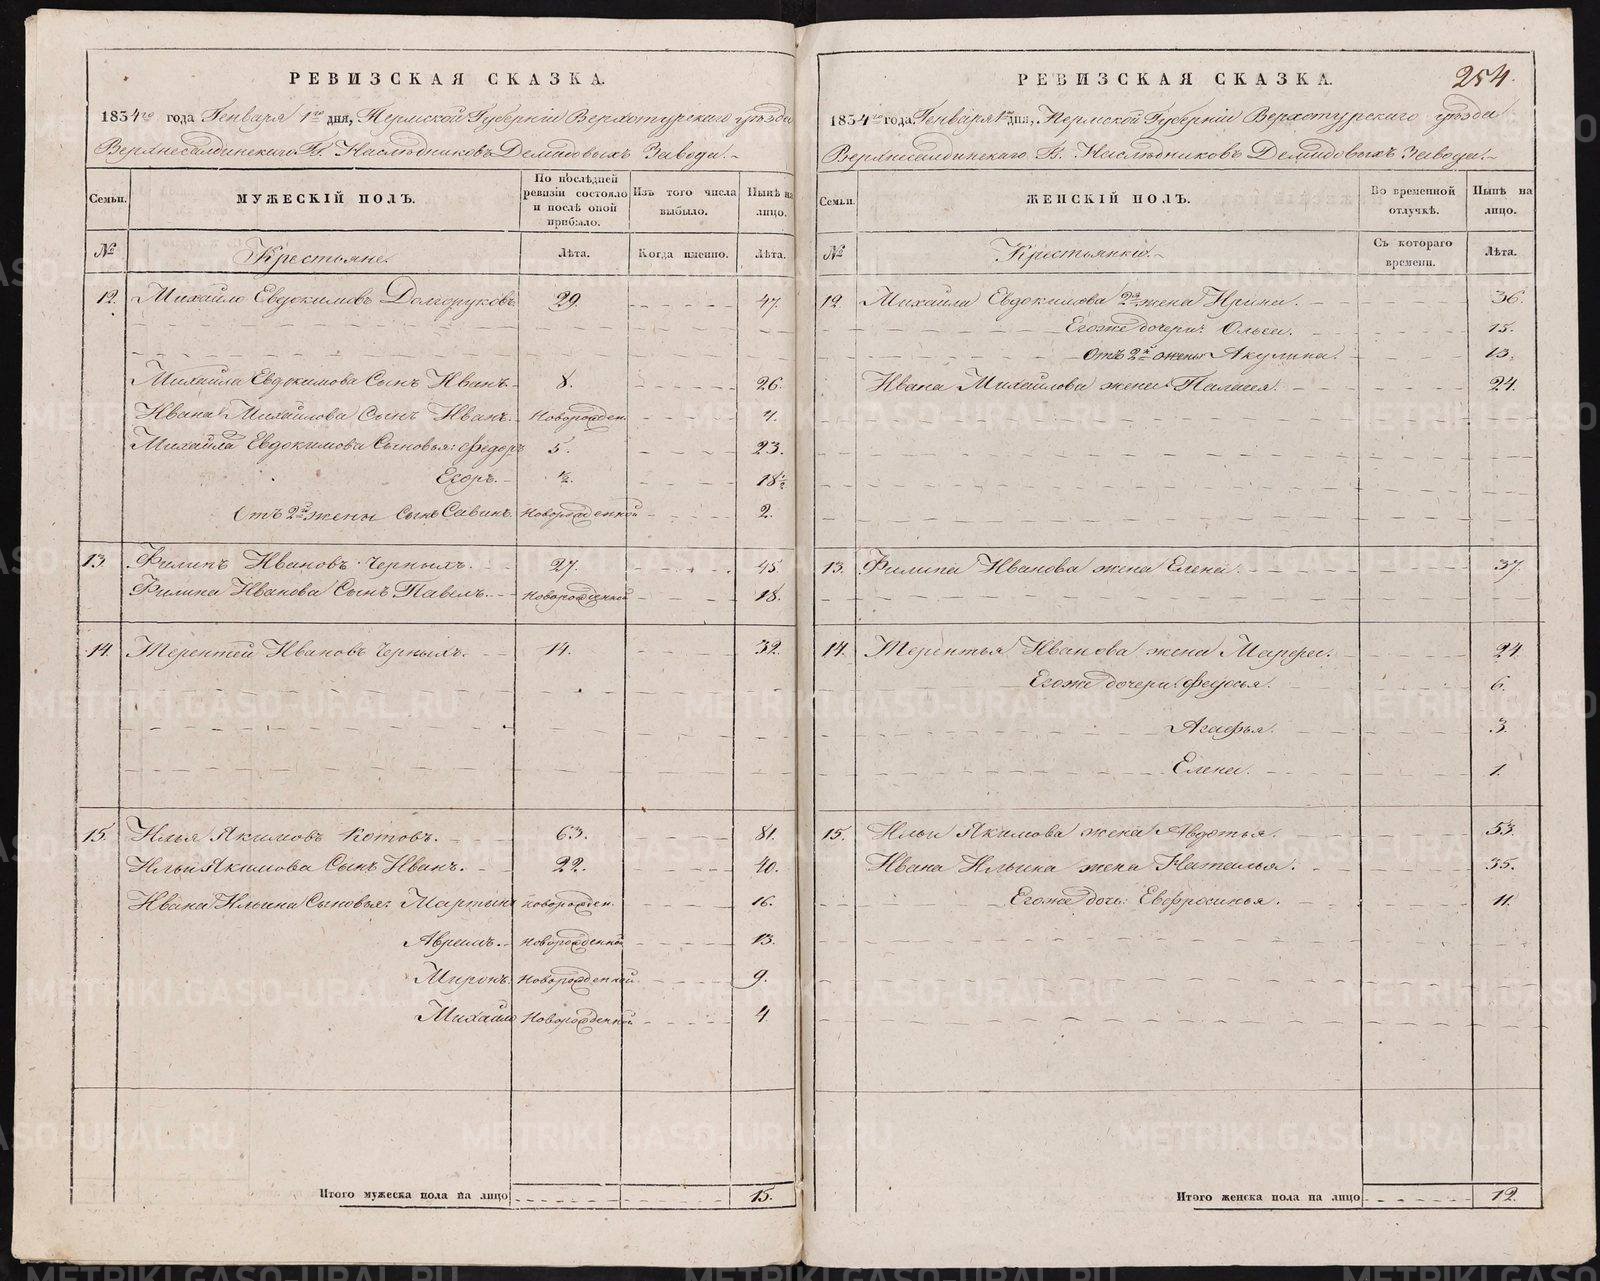 РЕВИЗСКАЯ СКАЗКА.
1834го года Генваря 1го дня, Пермской Губернiи Верхотурскаго уѣзда
Верхнесалдинскаго Г. Наслѣдниковъ Демидовыхъ Завода.
Семьи. МУЖЕСКIЙ ПОЛЪ. По послѣдней ревизiи состояло и послѣ оной прибыло. Изъ того числа выбыло. Нынѣ на лицо.
№ Крестьяне. Лѣта. Когда именно. Лѣта.
12. Михайло Евдокимовъ Долгоруковъ 29. 47.
Михайла Евдокимова Сынъ Иванъ. 8. 26.
Ивана Михайлова Сынъ Иванъ. Новорожден. 4.
Михайла Евдокимова Сыновья: Федоръ 5. 23.
Егоръ. ½. 18½
Отъ 2й жены Сынъ Савинъ. Новорожденной 2.
13. Филипъ Ивановъ Черныхъ. 27. 45.
Филипа Иванова Сынъ Павелъ. Новорожденной 18.
14. Терентей Ивановъ Черныхъ. 14. 32.
15. Илья Якимовъ Котовъ. 63. 81.
Ильи Якимова Сынъ Иванъ. 22. 40.
Ивана Ильина Сыновья: Мартынъ новорожден. 16.
Аврамъ. Новорожденной 13.
Миронъ. Новорожденной. 9.
Михайло Новорожденной 4.
Итого мужеска пола на лицо 15.
254.
РЕВИЗСКАЯ СКАЗКА.
1834го года, Генваря 1го дня, Пермской Губернiи Верхотурскаго уѣзда
Верхнесалдинскаго Г. Наслѣдниковъ Демидовыхъ Завода.
Семьи. ЖЕНСКIЙ ПОЛЪ. Во временной отлучкѣ. Нынѣ на лицо.
№ Крестьянки. Съ котораго времени. Лѣта.
12. Михайла Евдокимова 2я жена Ирина. 36.
Егоже дочери: Ольга. 15.
Отъ 2й жены Акулина. 13.
Ивана Михайлова жена Палагея. 24.
13. Филипа Иванова жена Елена. 37.
14. Терентья Иванова жена Марфа. 24.
Егоже дочери: Федосья. 6.
Агафья. 3.
Елена. 1.
15. Ильи Якимова жена Авдотья. 53.
Ивана Ильина жена Наталья. 35.
Егоже дочь: Евфросинья. 11.
Итого женска пола на лицо 12.
METRIKI.GASO-URAL.RU